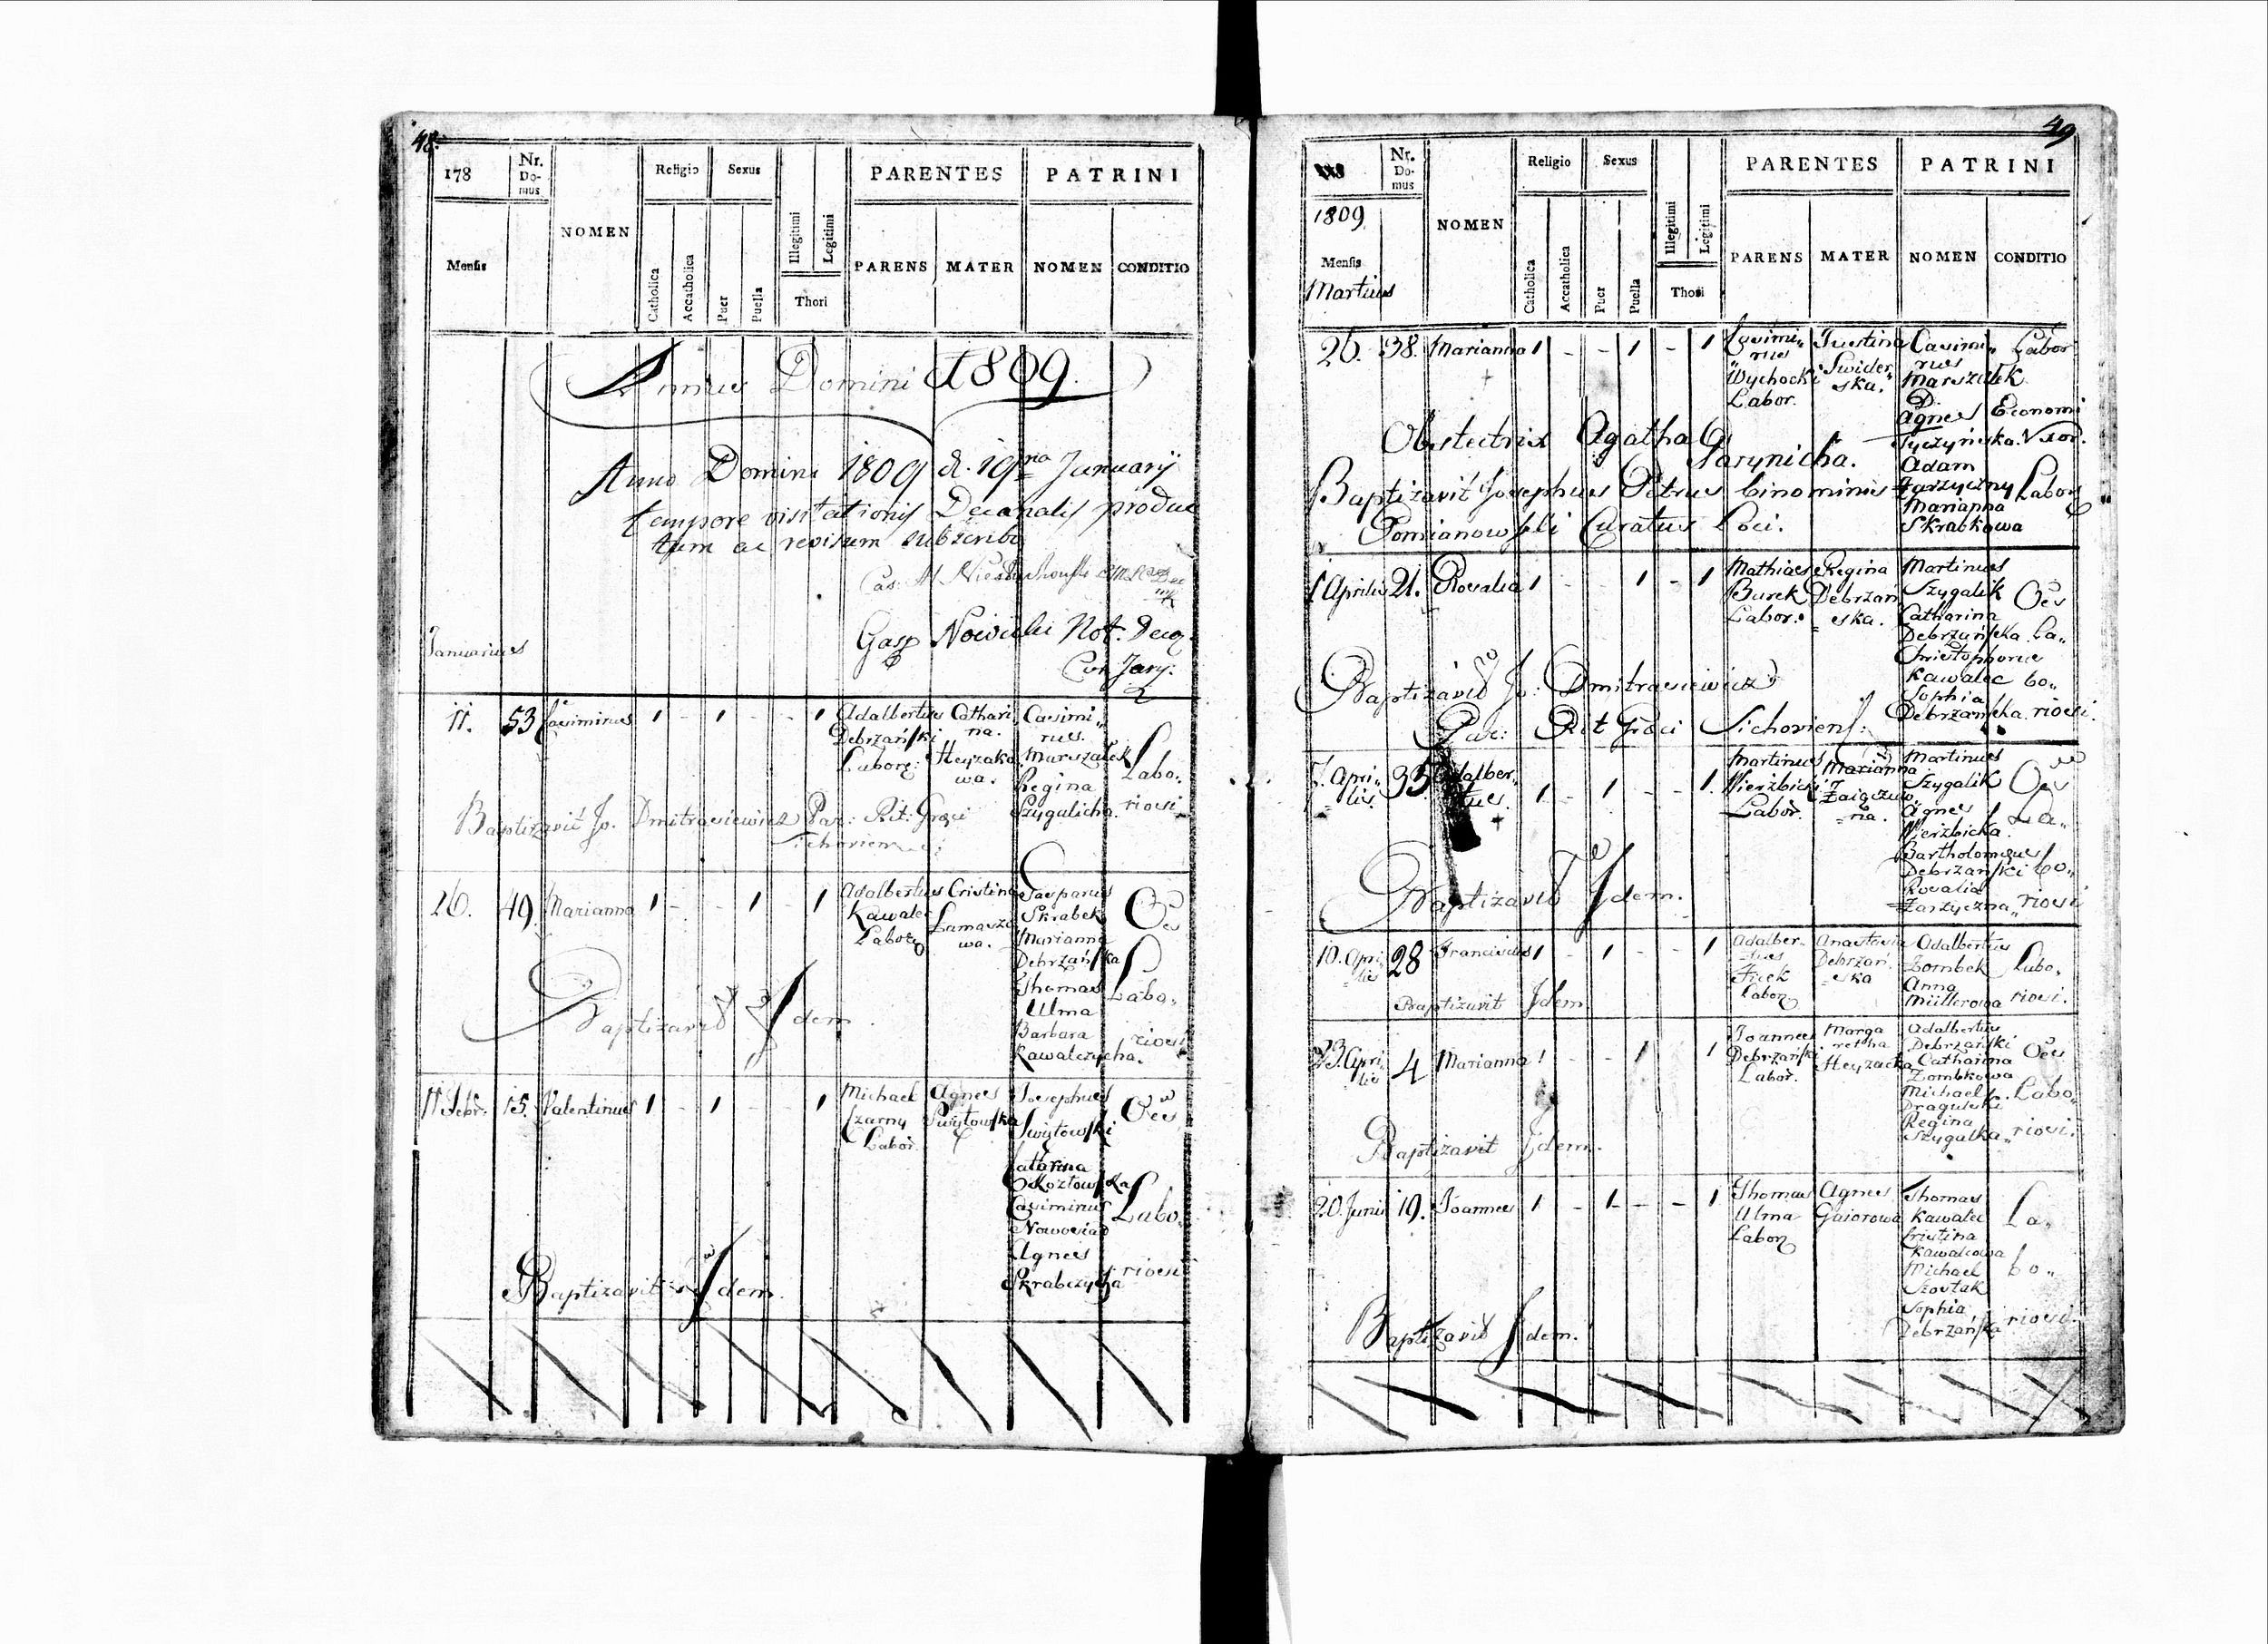 48.
178
Nr. Do-mus
NOMEN
Religio
Sexus
PARENTES
PATRINI
Mensis
Catholica
Accatholica
Puer
Puella
Illegitimi
Legitimi
Thori
PARENS
MATER
NOMEN
CONDITIO
Annus Domini 1809.
Anno Domini 1809 d. 19na January
tempore visitationis Decanalis produc
tum ac revisum subscribo
Gasp Nowicki Not. Deca.
Januarius
11. 53 Casimirus 1 - 1 - - 1 Adalbertus Cathari Casimi„
Debrzański na. rus.
Labor: Heyzako Marszałek Labo„
wa. Regina
Szygulicha. riosi
Baptizavit Jo. Dmitrasiewicz Par: Rit: Graeci
26. 49 Marianna 1 - - 1 - 1 Adalbertus Cristina Gasparus
Kawalec Skrabek
Labor wa. Marianna
Debrzańska
Thomas Labo„
Ulma
Barbara riosi
Kawalczycha.
Baptizavit Idem.
11 Febr: 15. Valentinus 1 - 1 - - 1 Michael Agnes Josephus
Czarny Swiętowska Swiętowski
Labor.
Catarina
Kozłowska
Casimirus Labo„
Nowosiad
Agnes riosi
Skrabczycha
Baptizavit Idem.
49
Nr. Do-mus
NOMEN
Religio
Sexus
PARENTES
PATRINI
1809
Mensis
Martius
Catholica
Accatholica
Puer
Puella
Illegitimi
Legitimi
Thori
PARENS
MATER
NOMEN
CONDITIO
26. 38. Marianna 1 - - 1 - 1 Casimi„ Justina Casimi„ Labor
rus Swider„ rus
Wychocki ska. Marszałek
Labor. D.
Agnes Economi
Obstetrix Agatha Tyczyńska. Uxor.
Garynicha. Adam
Baptizavit Josephus Petrus binominis Zarzyczny Labor
Marianna
Pomianowski Curatus Loci. Skrabkowa
1 Aprilis 21. Rosalia 1 - - 1 - 1 Mathias Regina Martinus
Burek Debrzań Szygalik
Labor. ska. Catharina
Debrzańska La„
Christophorus
Kawalec bo„
Sophia
Debrzańska. riosi.
Baptizavit Jo: Dmitrasiewicz
Par: Rit Graeci Tichoviens:
7. Apri„ 35 Adalber„ 1 - 1 - - 1. Martinus Marianna Martinus
lis. tus. Wierzbicki Szygalik
Labor. na. Agnes La„
Wierzbicka.
Bartholomeus
Debrzański bo„
Rosalia
Zarzyczna„ riosi
Baptizavit Idem.
10. Apri 28 Franciscus 1 - 1 - - 1 Adalber- Anastasia Adalbertus
lis tus Debrzań Zombek Labo„
Ficek ska Anna
Labor Müllerowa riosi.
Baptizavit Idem
23. Apri 4 Marianna 1 - - 1 1 Joannes Marga Adalbertus
lis Debrzański retha Debrzański
Labor. Heyzacka Catharina
Zombkowa
Michael Labo„
Draguleski
Regina
Szygalka„ riosi.
Baptizavit Idem.
20. Junii 19. Joannes 1 - 1 - - 1 Thomas Agnes Thomas
Ulma Gaiorowa Kawalec La„
Labor Cristina
Kawalcowa
Michael bo„
Szostak
Sophia
Debrzańska riosi.
Baptizavit Idem.